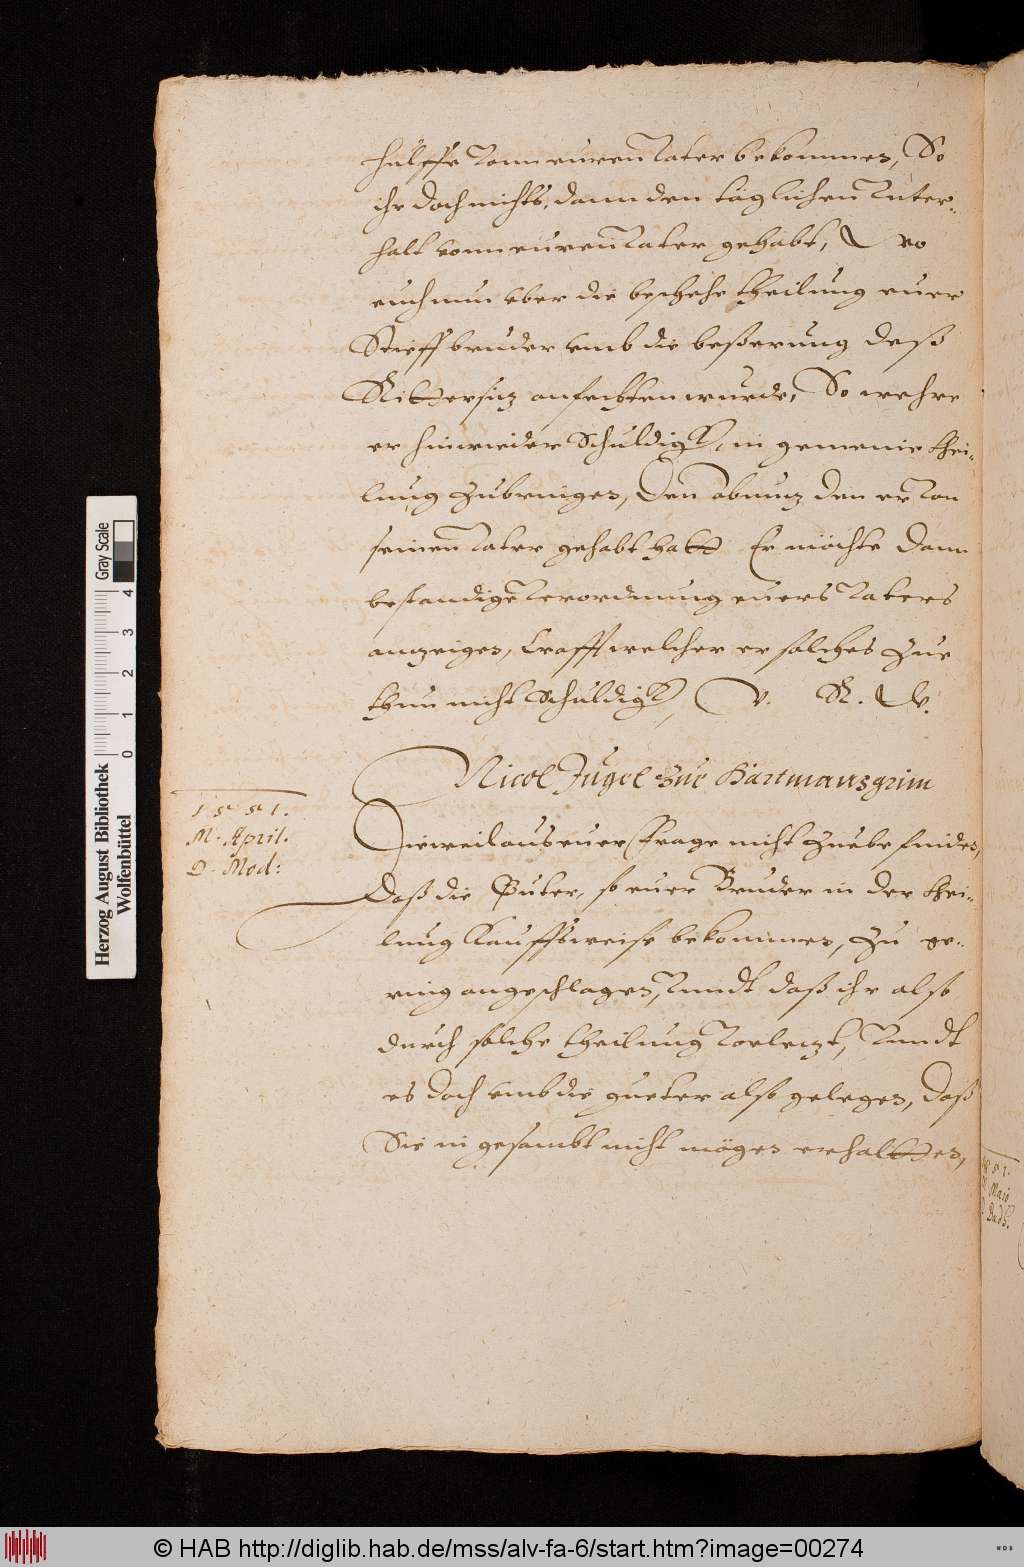 hulffe vonn euren Vater bekommen, So
ihr doch nichts, dann den täglichen Vnter-
halt vonn euren Vater gehabt, V wo
euch nun vber die beschehe theilung euer
Stieffbruder vmb die beßerung deß
Rittersitz anfechten wurde, So wehre
er hinwieder Schuldigk, in gemeine thei-
lung zubringen, den abnutz den er von
seinen Vater gehabt hatt Er möchte dann
bestendige Verordnung euers Vaters
anzeigen, Crafft welcher er solches zue
thun nicht Schuldigk, V. R. W.
Nicol Jugel zue Hartmansgrim
1551.
M. April.
D. Mod:
Dieweil aus euer Frage nicht zuebefinden,
Daß die Güter, so euer Bruder in der thei-
lung Kauffsweise bekommen, zu ge-
ring angeschlagen, Vnndt daß ihr also
durch solche theilung Vorletzt, Vnndt
es doch vmb die gueter also gelegen, daß
Sie in gesambt nicht mögen erhaltten,
1551.
M. Maio
D. Bads.
Gray Scale
0 1 2 3 4
Herzog August Bibliothek
Wolfenbüttel
© HAB http://diglib.hab.de/mss/alv-fa-6/start.htm?image=00274